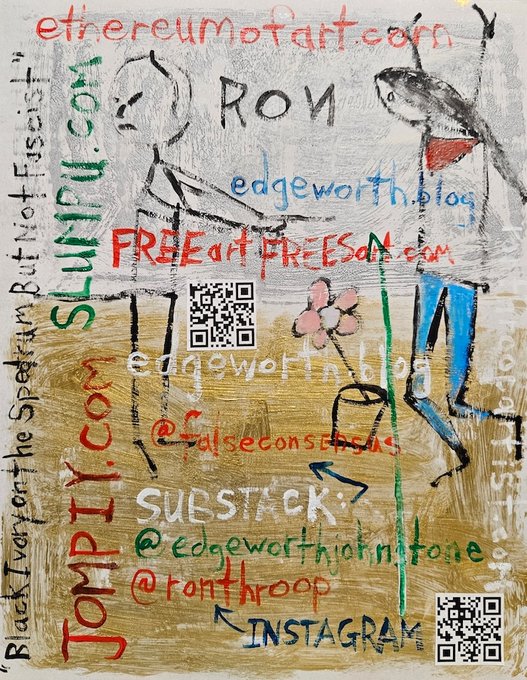 ethereumofart.com
RON
edgeworth.blog
FREEart FREESart.com
edgeworth.blog
@falseconsensus
SUBSTACK:
@edgeworthjohnstone
@ronthroop
INSTAGRAM
SLUMPY.com
JOMPIY.com
"Black Ivory on the Spectrum But Not Fascist"